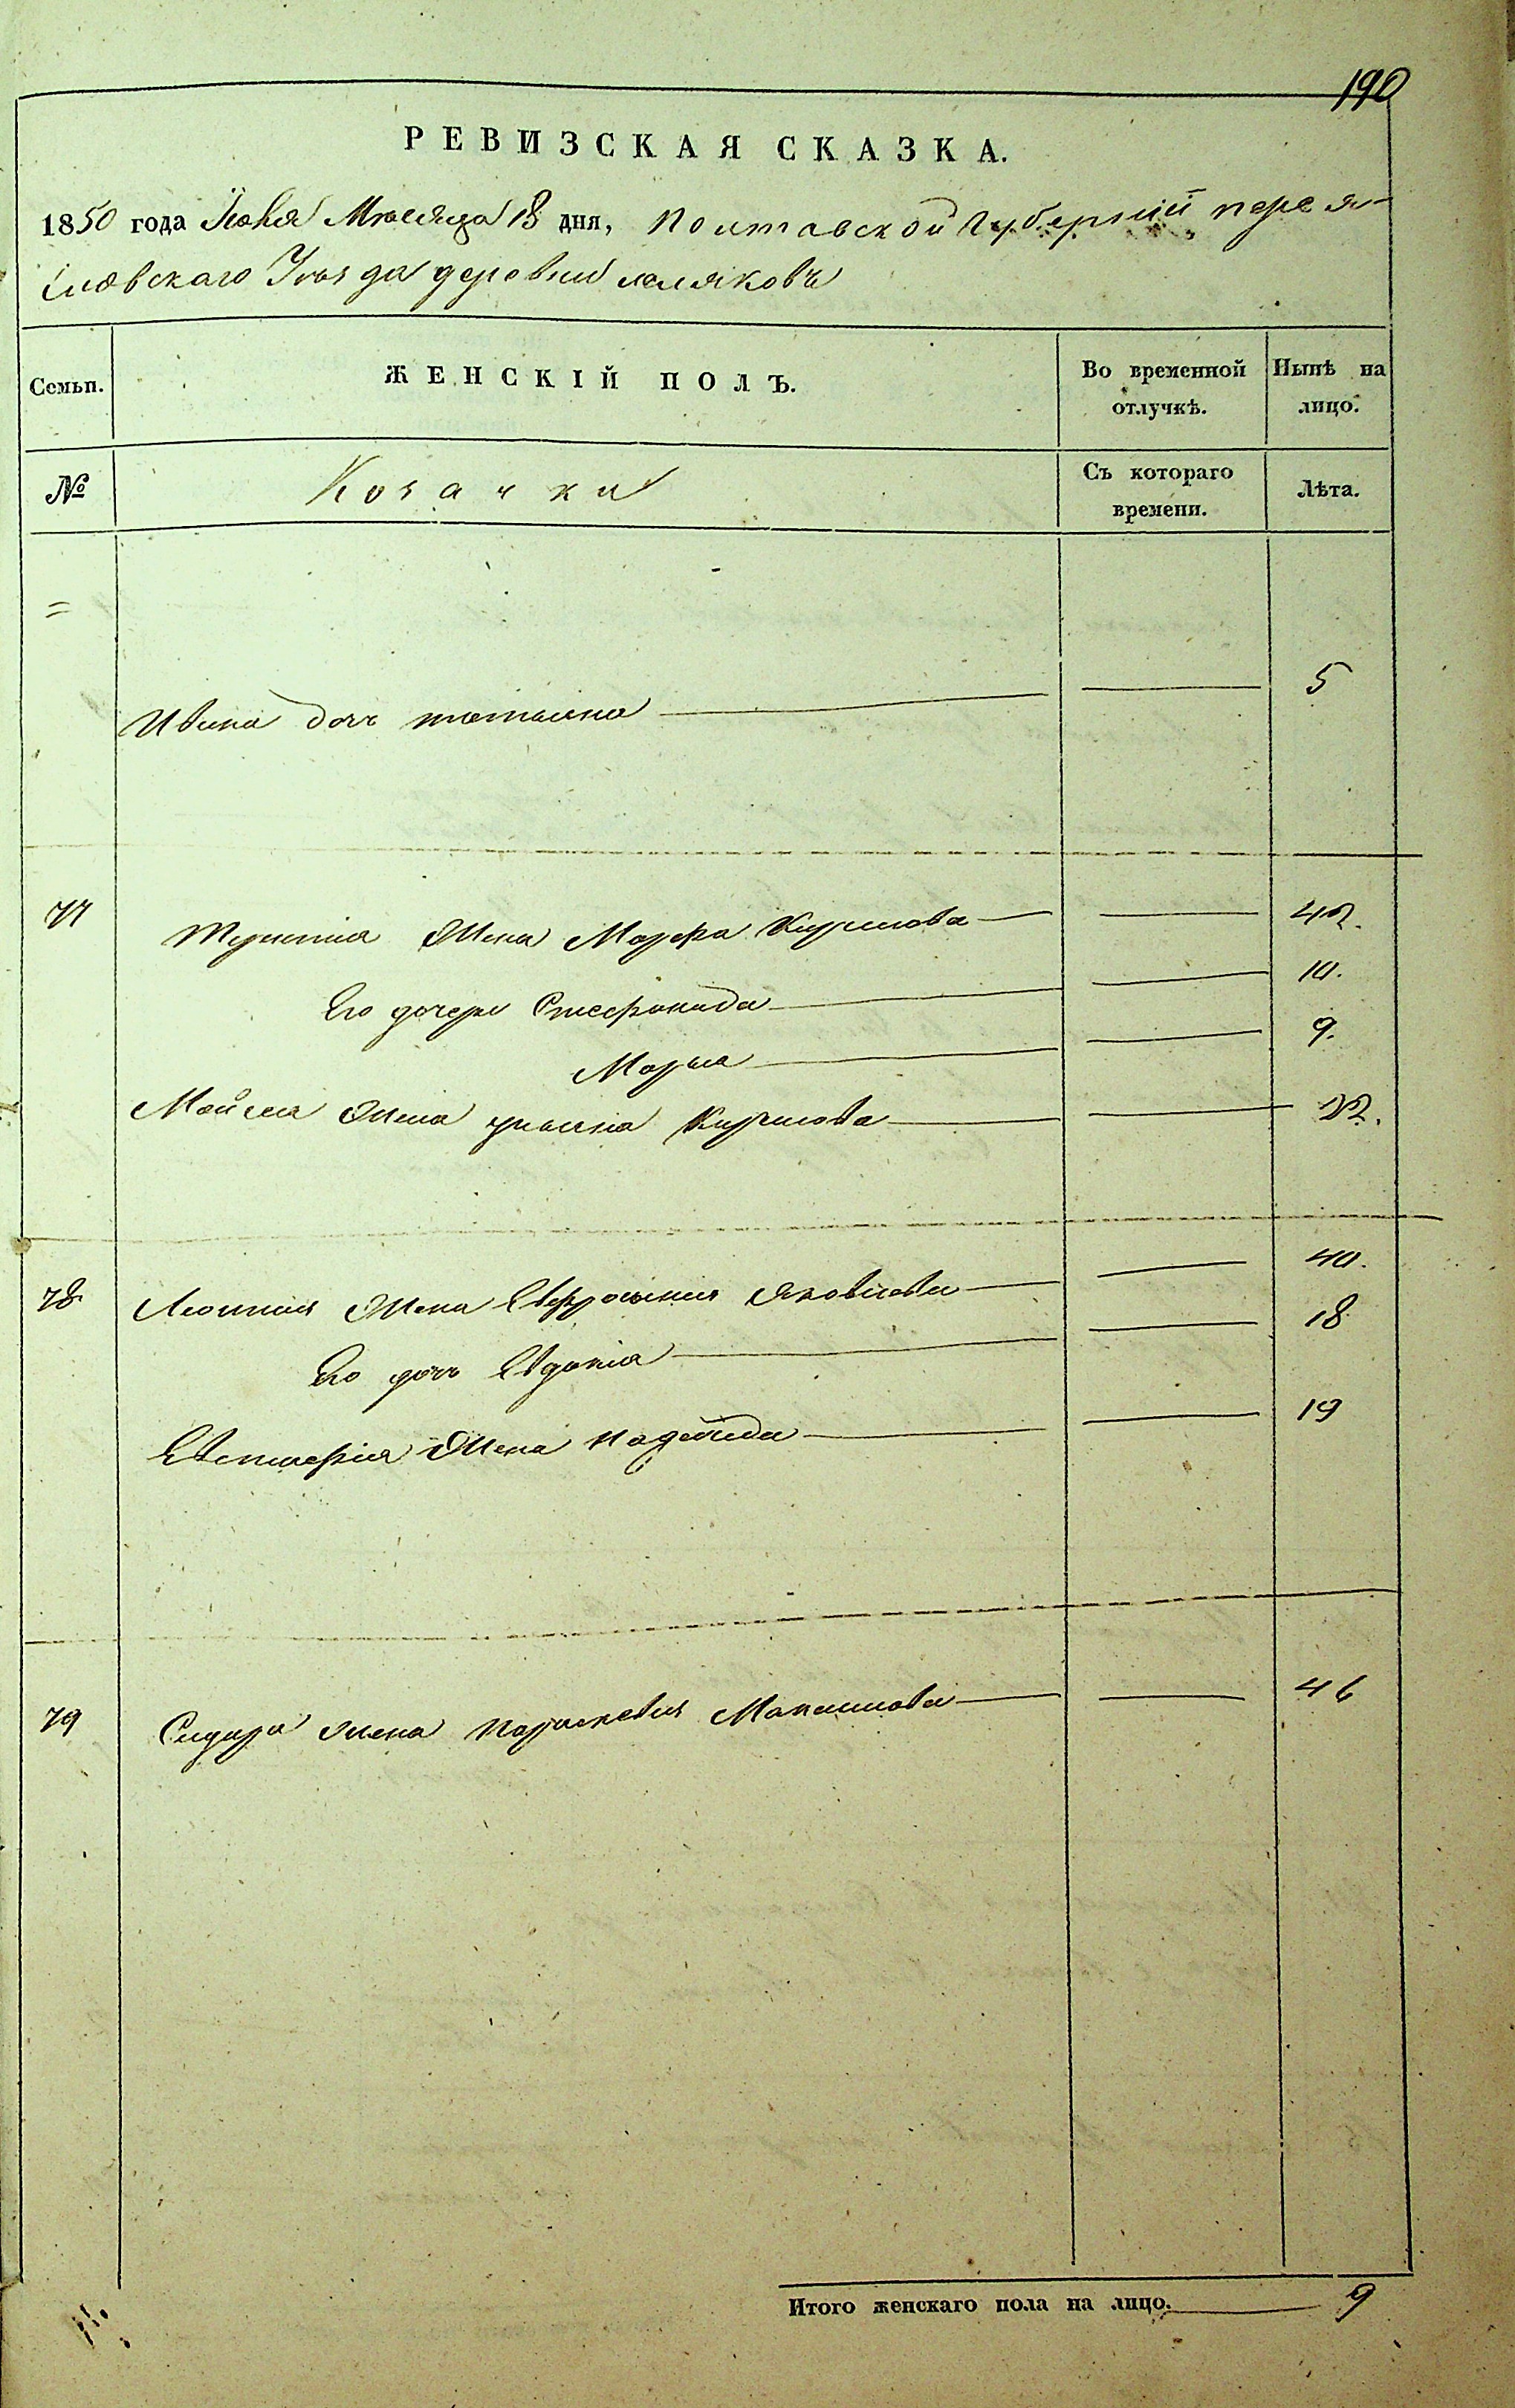 190
РЕВИЗСКАЯ СКАЗКА.
1850 года Іюня Мѣсяца 18 дня, Полтавской Губерніи перея-
словскаго Уѣзда деревни
Семьи. ЖЕНСКІЙ ПОЛЪ. Во временной отлучкѣ. Нынѣ на лицо.
№ Козачки Съ котораго времени. Лѣта.
=
Ивана дочь татьяна 5
77 Терентія Жена Марфа Кирилова 42.
Его дочери Стефанида 10.
Марья 9.
Мойсея Жена ульяна Кирилова 22.
78 Леонтия Жена Евфросиния Яковлева 40.
Его дочь Евдокія 18
Евстафія Жена Надежда 19
79 Сидора жена Параскевия 46
Итого женскаго пола на лицо. 9